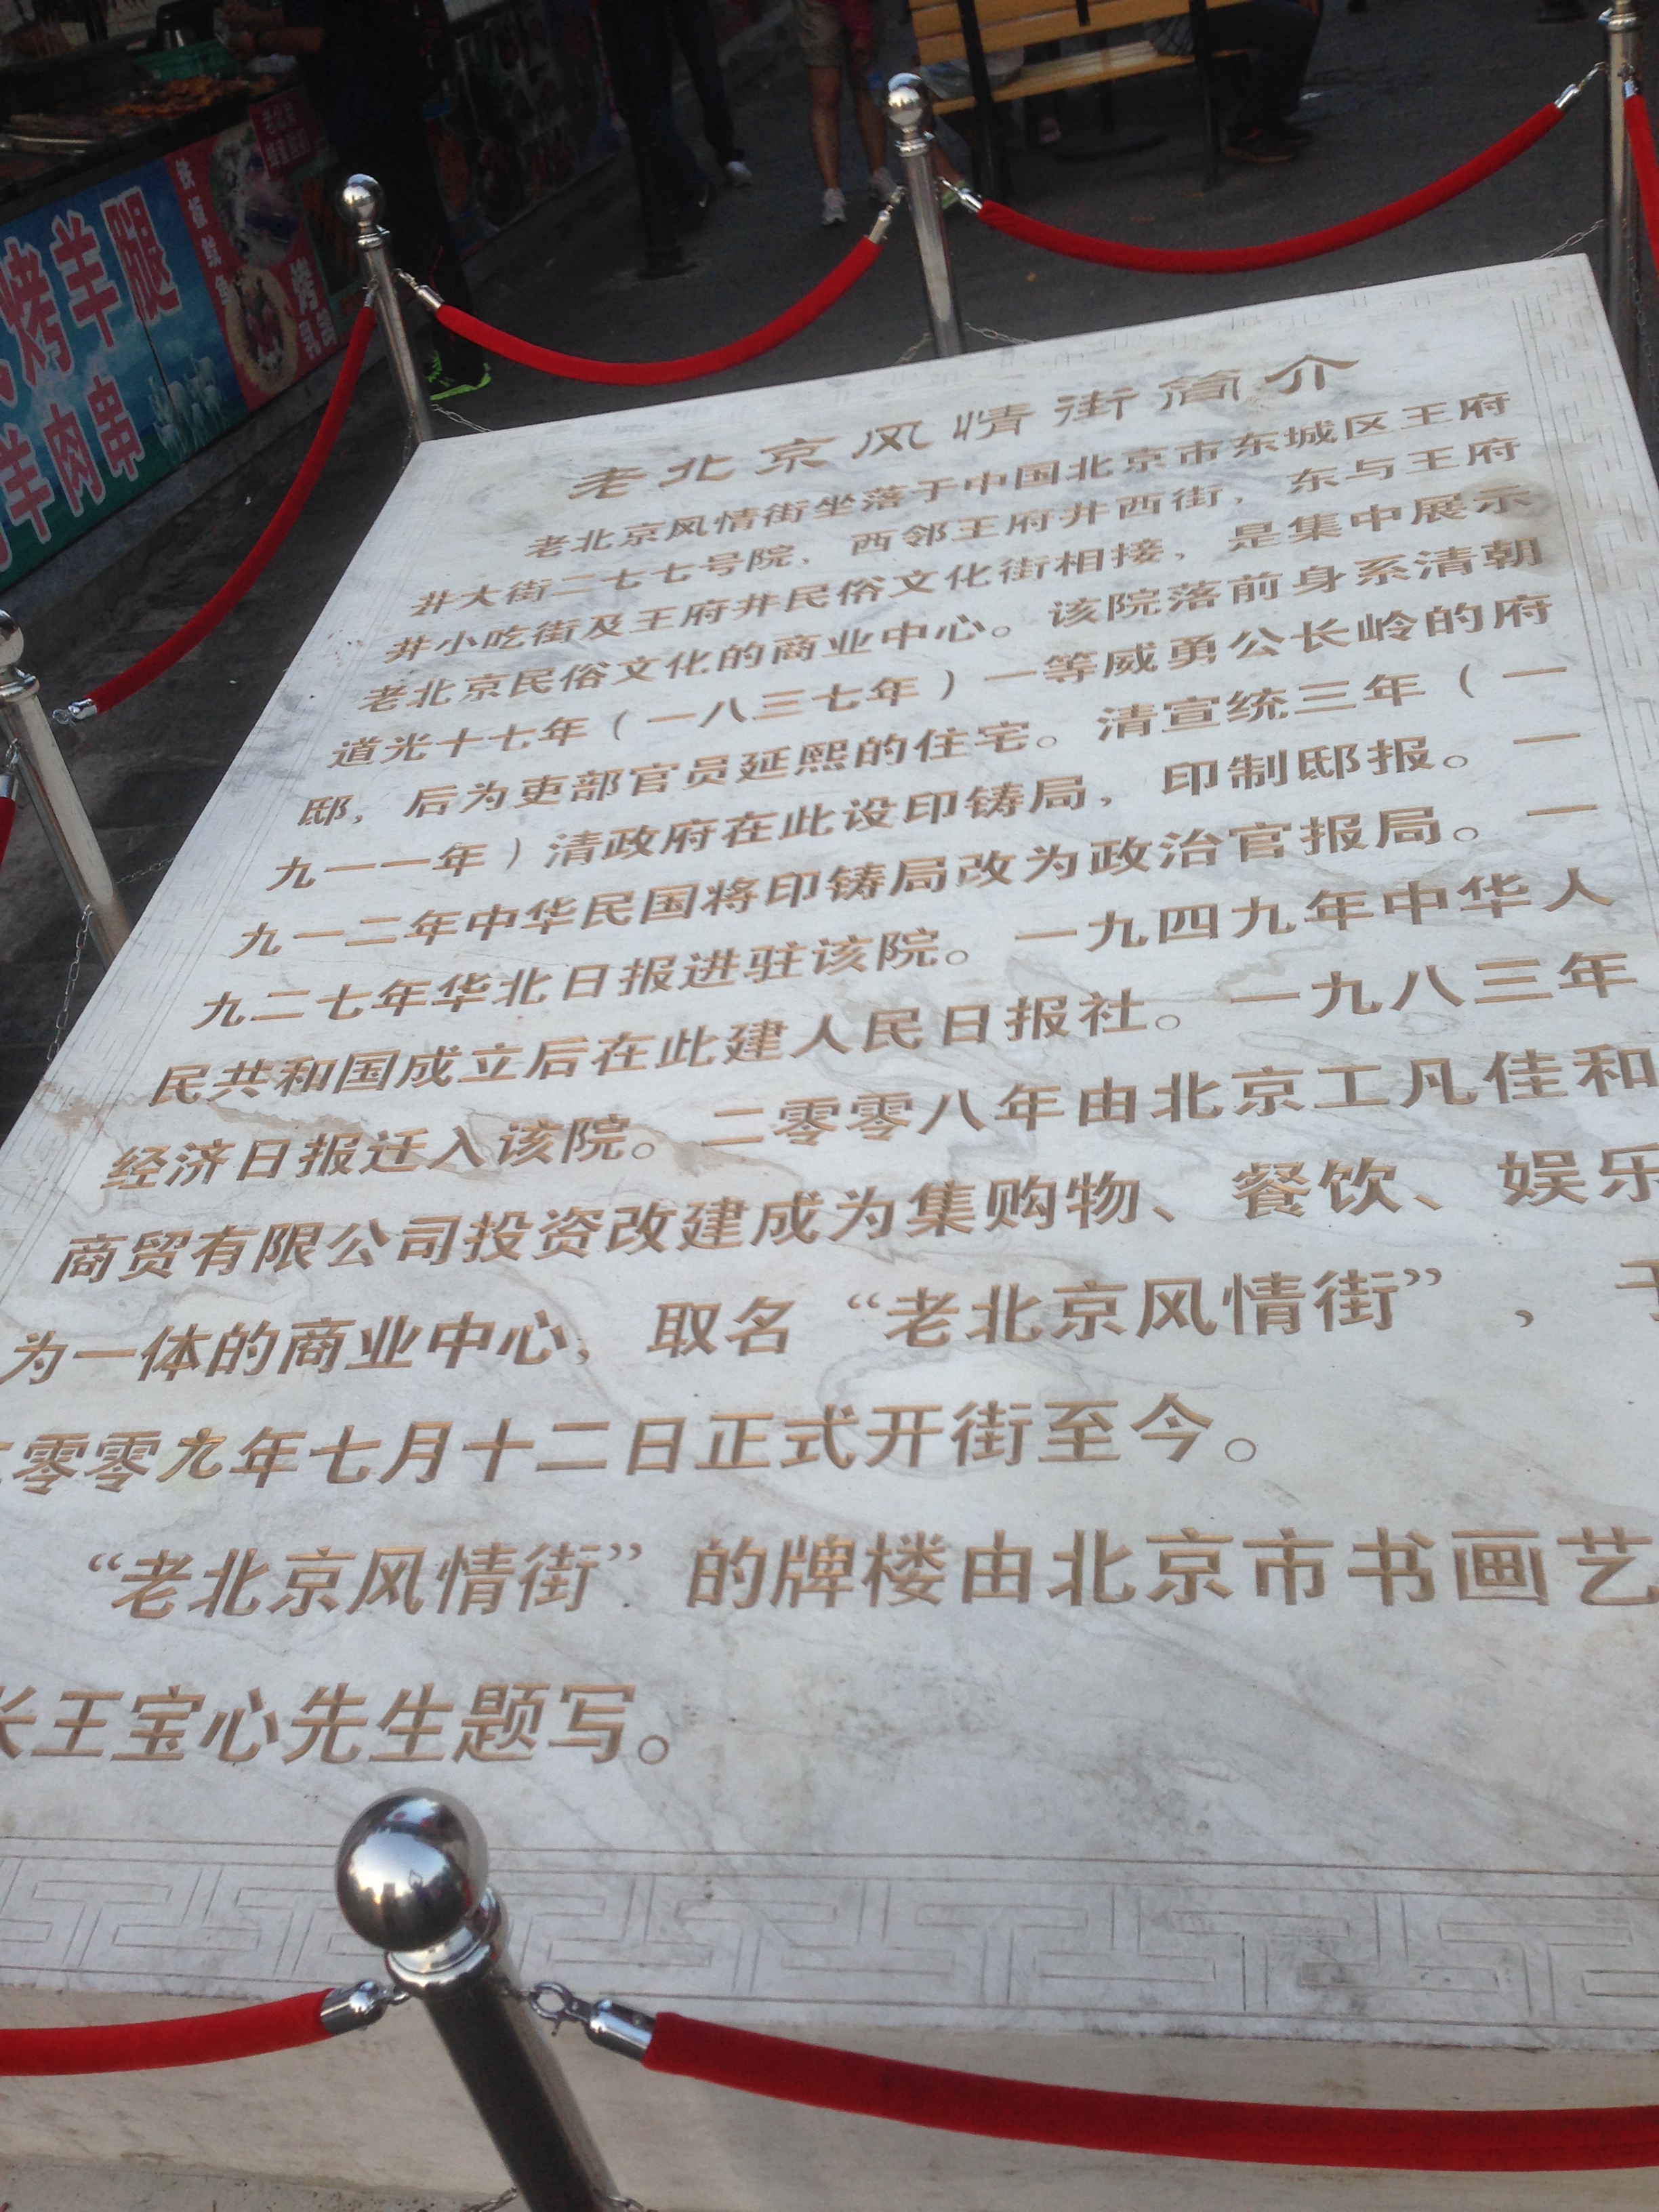 老北京风情街简介
老北京风情街坐落于中国北京市东城区王府
井大街二七七号院，西邻王府井西街，东与王府
井小吃街及王府井民俗文化街相接，是集中展示
老北京民俗文化的商业中心。该院落前身系清朝
道光十七年（一八三七年）一等威勇公长岭的府
邸，后为吏部官员延熙的住宅。清宣统三年（一
九一一年）清政府在此设印铸局，印制邸报。一
九一二年中华民国将印铸局改为政治官报局。一
九二七年华北日报进驻该院。一九四九年中华人
民共和国成立后在此建人民日报社。一九八三年
经济日报迁入该院。二零零八年由北京工凡佳和
商贸有限公司投资改建成为集购物、餐饮、娱乐
为一体的商业中心，取名“老北京风情街”，于
二零零九年七月十二日正式开街至今。
“老北京风情街”的牌楼由北京市书画艺
长王宝心先生题写。
烤羊腿
羊肉串
铁板鱿鱼
烤